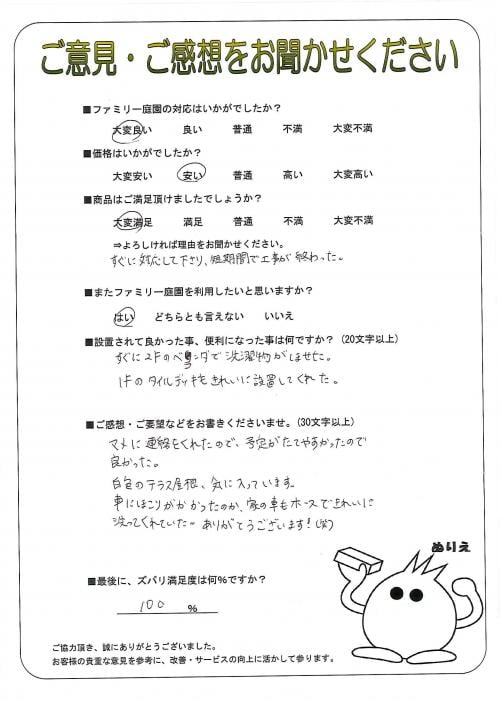 ご意見・ご感想をお聞かせください
■ファミリー庭園の対応はいかがでしたか？
大変良い　良い　普通　不満　大変不満
■価格はいかがでしたか？
大変安い　安い　普通　高い　大変高い
■商品はご満足頂けましたでしょうか？
大変満足　満足　普通　不満　大変不満
⇒よろしければ理由をお聞かせください。
すぐに対応して下さり、短期間で工事が終わった。
■またファミリー庭園を利用したいと思いますか？
はい　どちらとも言えない　いいえ
■設置されて良かった事、便利になった事は何ですか？（20文字以上）
すぐに2Fのベランダで洗濯物がほせた。
1Fのタイルデッキもきれいに設置してくれた。
■ご感想・ご要望などをお書きくださいませ。（30文字以上）
マメに連絡をくれたので、予定がたてやすかったので
良かった。
白色のテラス屋根、気に入っています。
車にほこりがかかったのか、家の車もホースできれいに
洗ってくれていた!! ありがとうございます!(笑)
ぬりえ
■最後に、ズバリ満足度は何％ですか？
100 ％
ご協力頂き、誠にありがとうございました。
お客様の貴重な意見を参考に、改善・サービスの向上に活かして参ります。